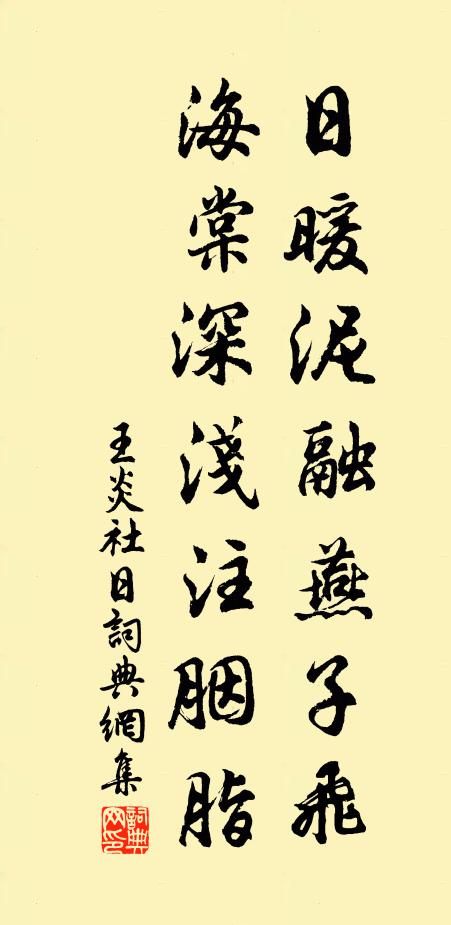 日暖泥融燕子飛
海棠深淺注胭脂
王炎社日詞典網集
詞典
网印